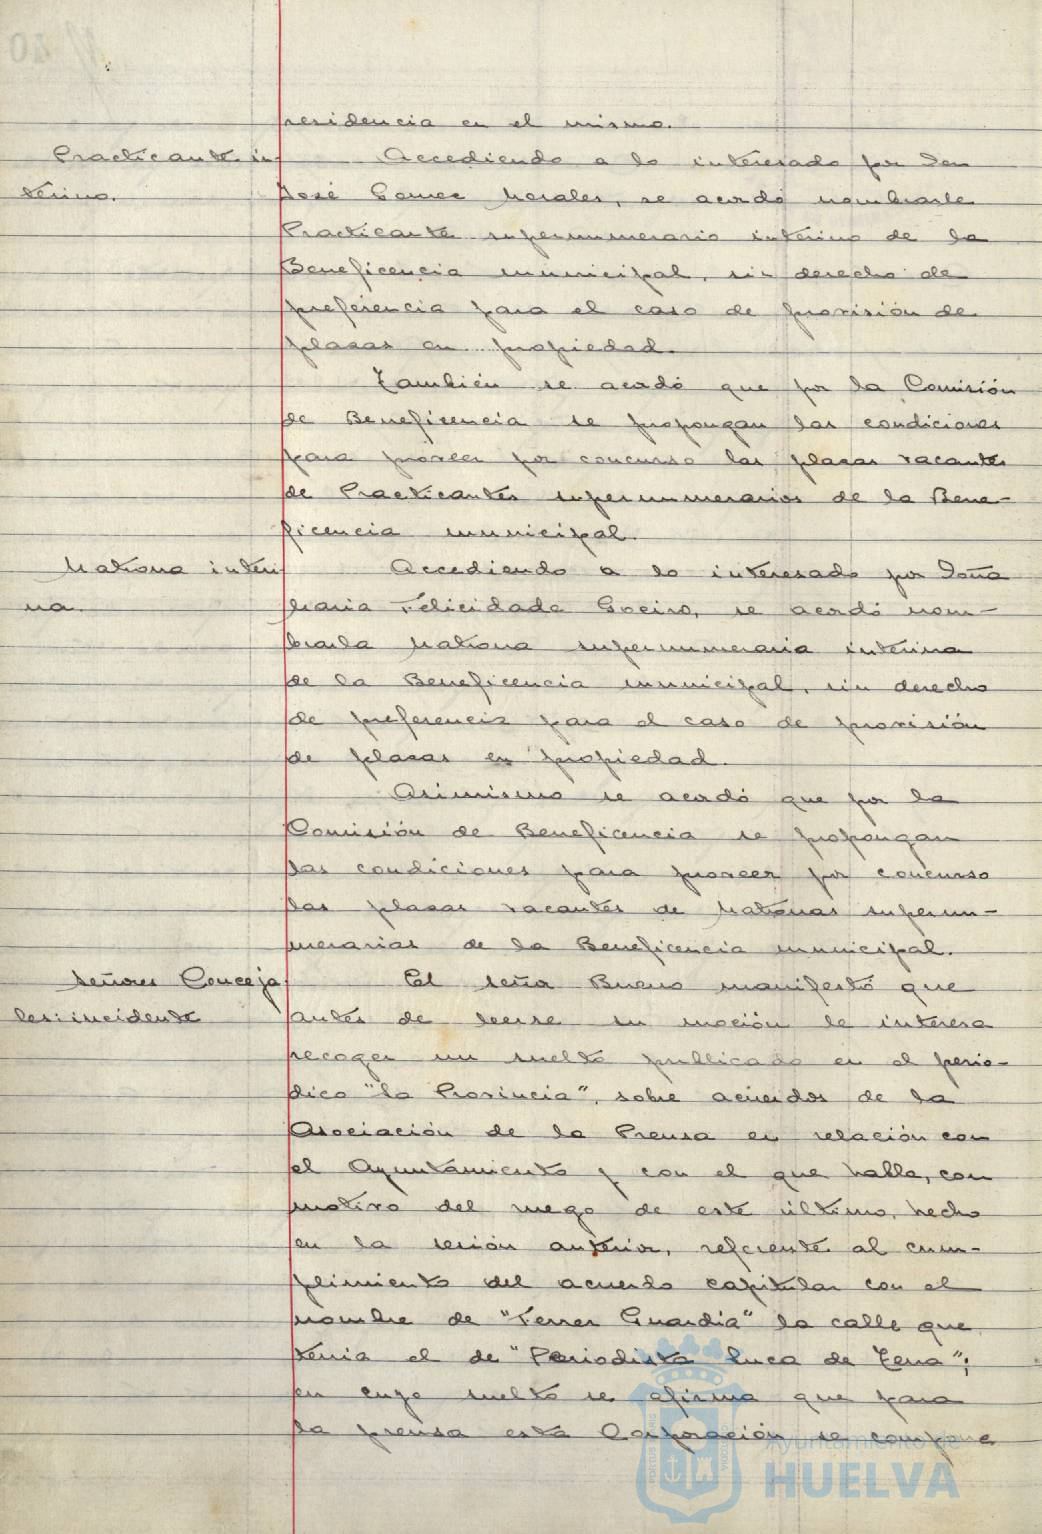 residencia en el mismo.
Practicante in-
terino.
Accediendo a lo interesado por Don
José Gomez Morales, se acordó nombrarle
Practicante supernumerario interino de la
Beneficencia municipal, sin derecho de
preferencia para el caso de provisión de
plazas en propiedad.
También se acordó que por la Comisión
de Beneficencia se propongan las condiciones
para proveer por concurso las plazas vacantes
de Practicantes supernumerarios de la Bene-
ficencia municipal.
Matrona interi
na.
Accediendo a lo interesado por Doña
Maria Felicidade Goeiro, se acordó nom-
brarla Matrona supernumeraria interina
de la Beneficencia municipal, sin derecho
de preferencia para el caso de provisión
de plazas en propiedad.
Asimismo se acordó que por la
Comisión de Beneficencia se propongan
las condiciones para proveer por concurso
las plazas vacantes de Matronas supernu-
merarias de la Beneficencia municipal.
Señores Conceja
les: incidente
El señor Bueno manifestó que
antes de leerse su moción le interesa
recoger un suelto publicado en el perio-
dico "La Provincia", sobre acuerdos de la
Asociación de la Prensa en relación con
el Ayuntamiento y con el que habla, con
motivo del ruego de este último, hecho
en la sesión anterior, referente al cum-
plimiento del acuerdo capitular con el
nombre de "Ferrer Guardia" la calle que
tenia el de "Periodista Luca de Tena";
en cuyo suelto se afirma que para
la prensa esta Corporación se compone
Ayuntamiento de
HUELVA